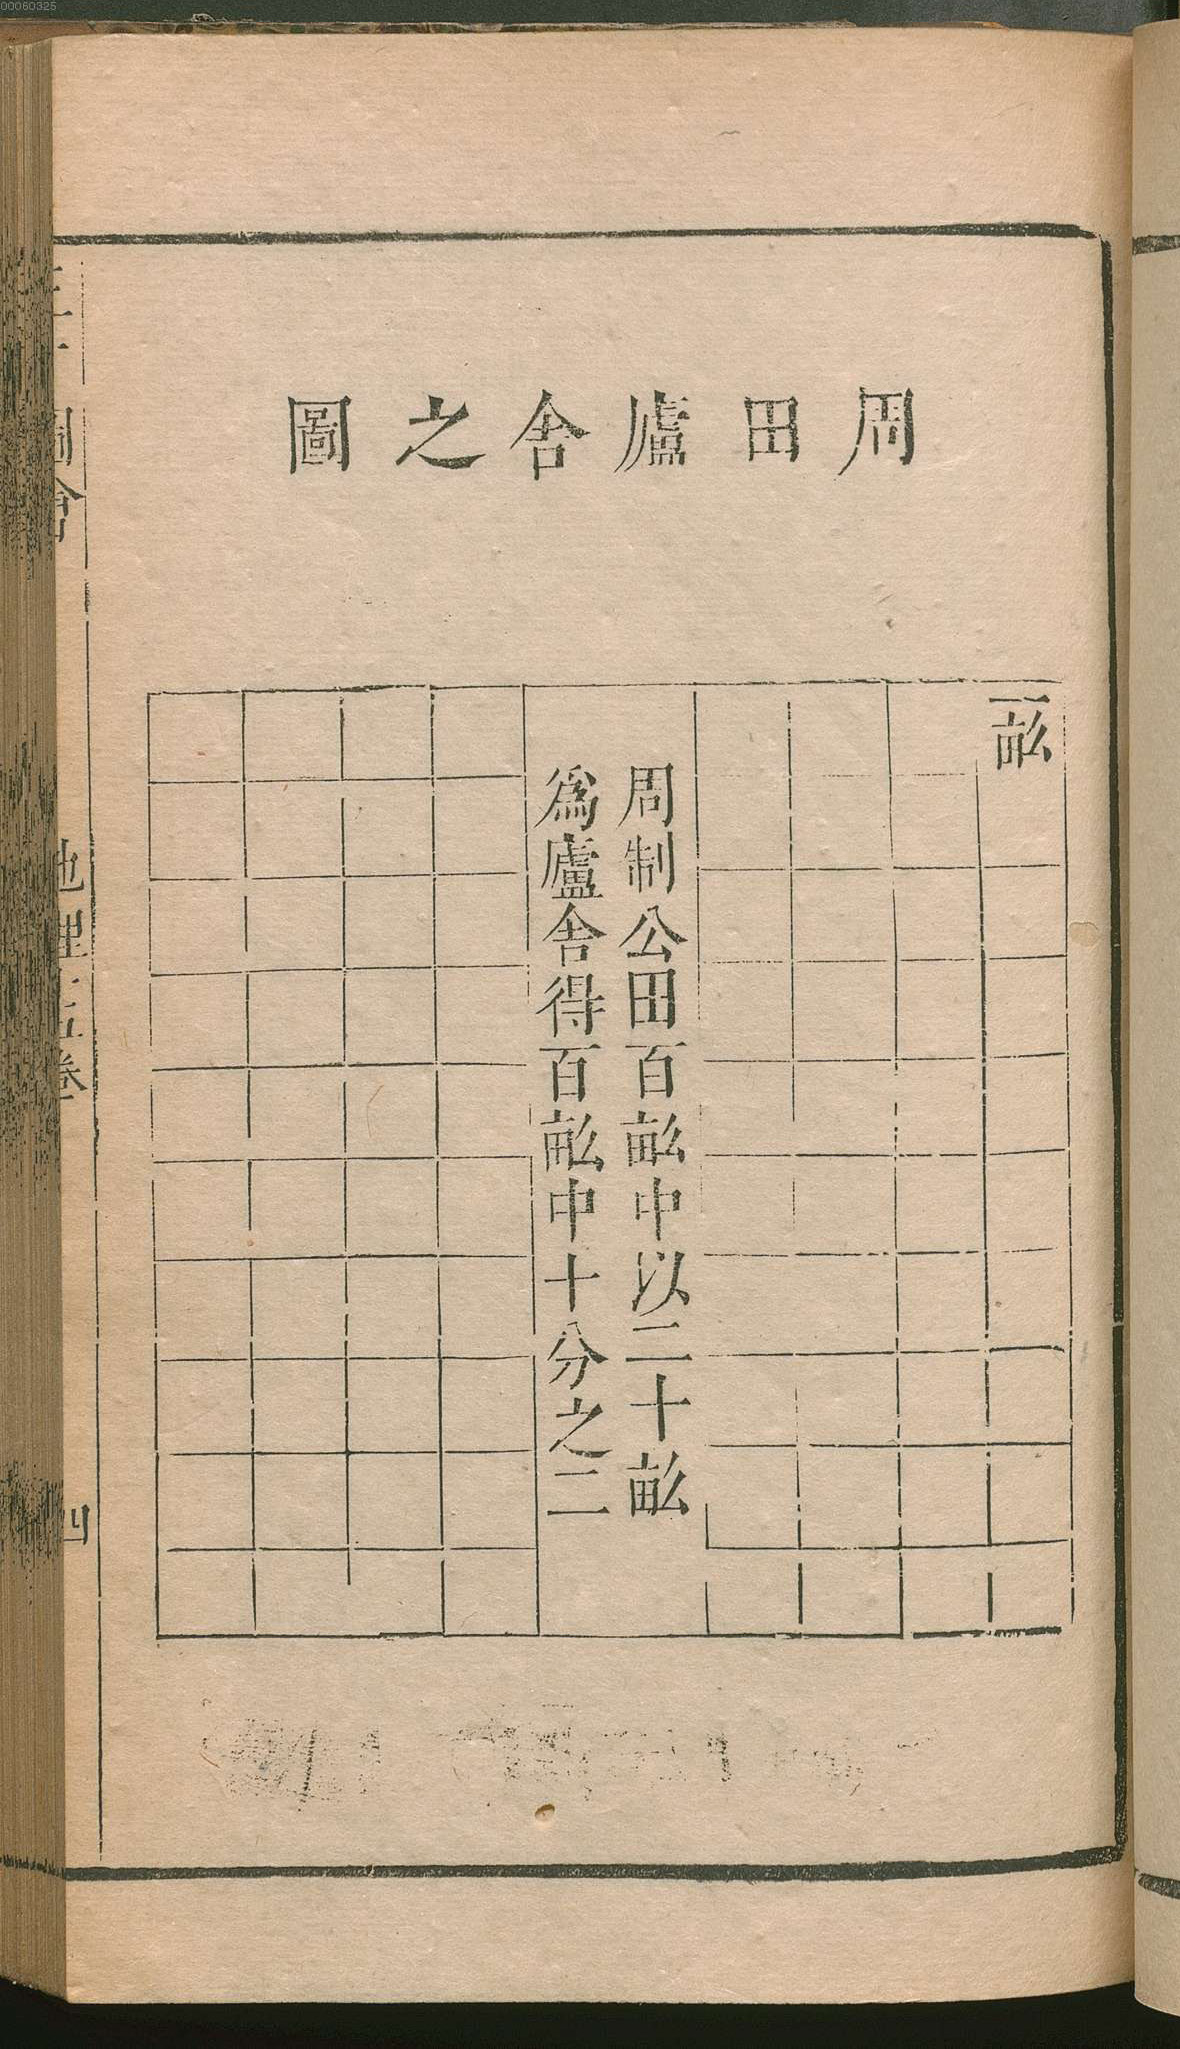 00060325
周田廬舍之圖
一畝
周制公田百畝中以二十畝
爲廬舍得百畝中十分之二
圖會
地理十五卷
四